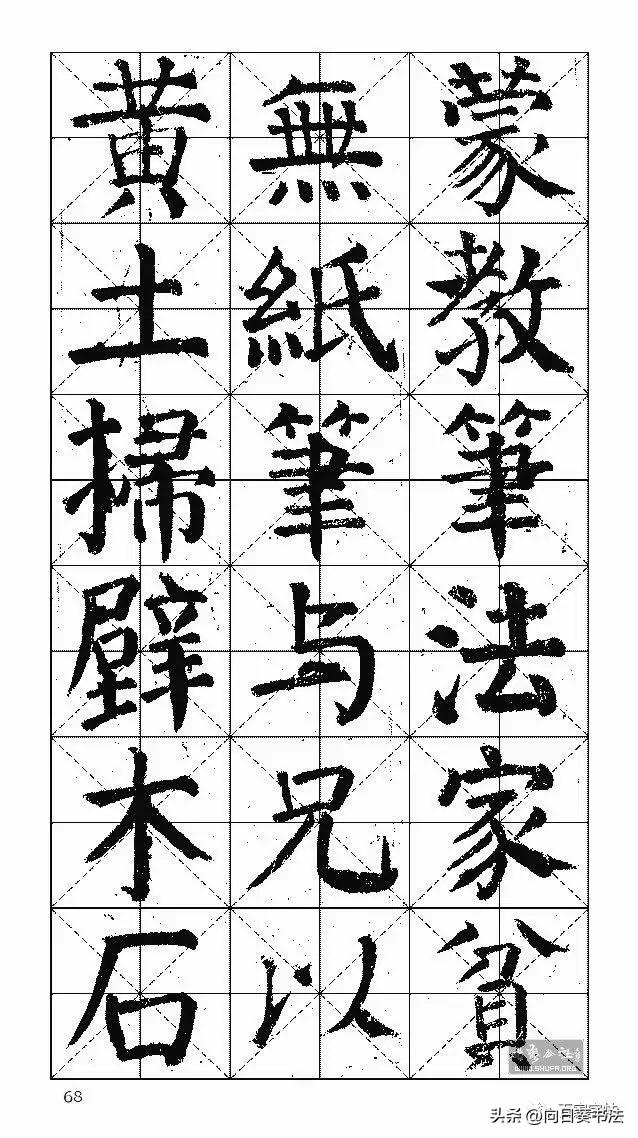 蒙教筆法家貧
無紙筆与兄以
黄土掃壁木石
68
WWW.SHUFA.ORG
头条 @向日葵书法